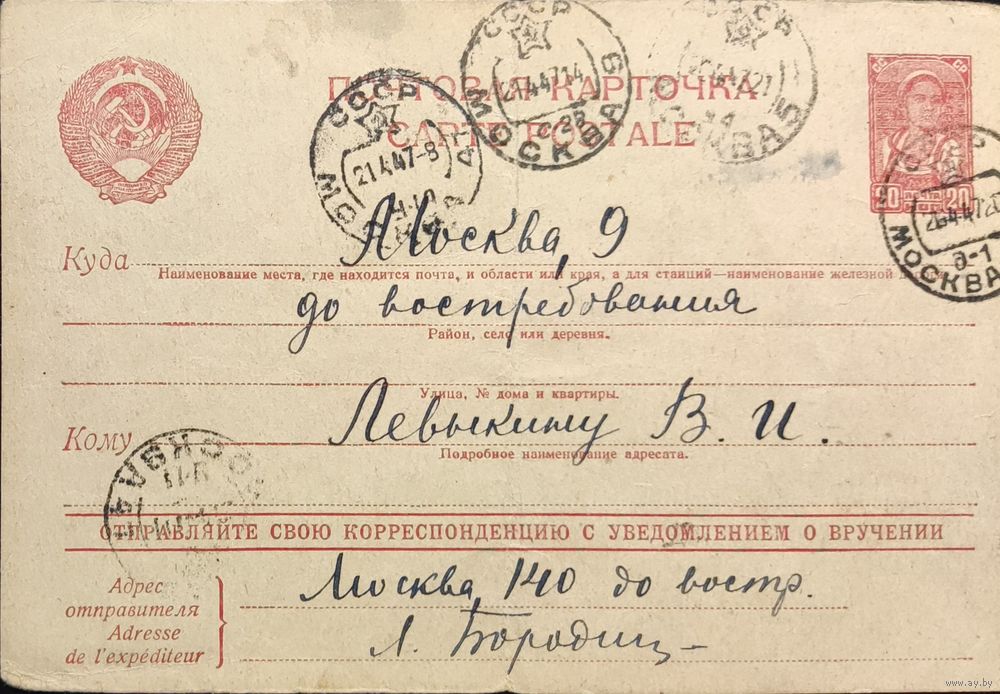 СССР
МОСКВА 9
21447-14
ПОЧТОВАЯ КАРТОЧКА
CARTE POSTALE
СССР
21447-8
МОСКВА
МОСКВА 5
СС СР
20 ПОЧТА 20
д-1
МОСКВА
Куда Москва, 9
Наименование места, где находится почта, и области или края, а для станций—наименование железной дороги
до востребования
Район, село или деревня.
Улица, № дома и квартиры.
Кому Левыкину В. И.
Подробное наименование адресата.
МОСКВА
ОТПРАВЛЯЙТЕ СВОЮ КОРРЕСПОНДЕНЦИЮ С УВЕДОМЛЕНИЕМ О ВРУЧЕНИИ
Адрес
отправителя
Adresse
de l'expéditeur
Москва, 140 до востр.
Л. Бородиц-
www.ay.by